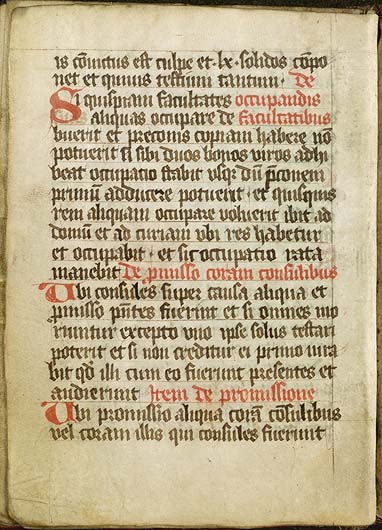 is cōuictus est culpe et · lx · solidos cōpo
net et quiuis testium tantum · De
Si quispiam facultates occupandis
aliquas occupare de facultatibus
buerit et preconis copiam habere nō
potuerit si sibi duos bonos viros adhi
beat occupatio stabit vsqʒ dū p̄conem
primū adducere potuerit · et quisquis
rem aliquam occupare voluerit ibit ad
domū et ad curiam vbi res habetur
et occupabit · et sic occupatio rata
manebit De p̄misso coram consulibus
Vbi consules super causa aliqua et
p̄misso p̄ntes fuerint et si omnes mo
riuntur excepto vno ipse solus testari
poterit et si non creditur ei primo iura
bit qd̄ illi cum eo fuerint presentes et
audierunt Item de promissione
Vbi promissio aliqua corā cōsulibus
vel coram illis qui consules fuerunt